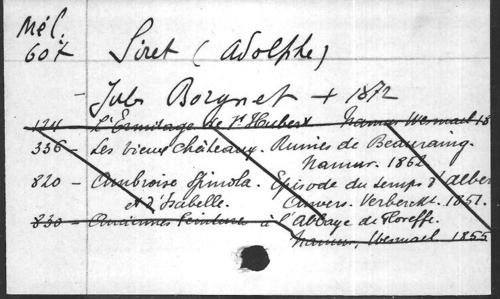 Mél.
607 Siret (Adolphe)
- Jules Borgnet + 1872
124 - L'Ermitage de St Hubert. Namur Wesmael 18
336 - Les vieux Châteaux. Ruines de Beauraing.
Namur. 1862
820 - Ambroise Spinola. Episode du temps d'Alber
et d'Isabelle. Anvers. Verberckt. 1851.
830 - Anciennes Peintures à l'Abbaye de Floreffe.
Namur, Wesmael 1855